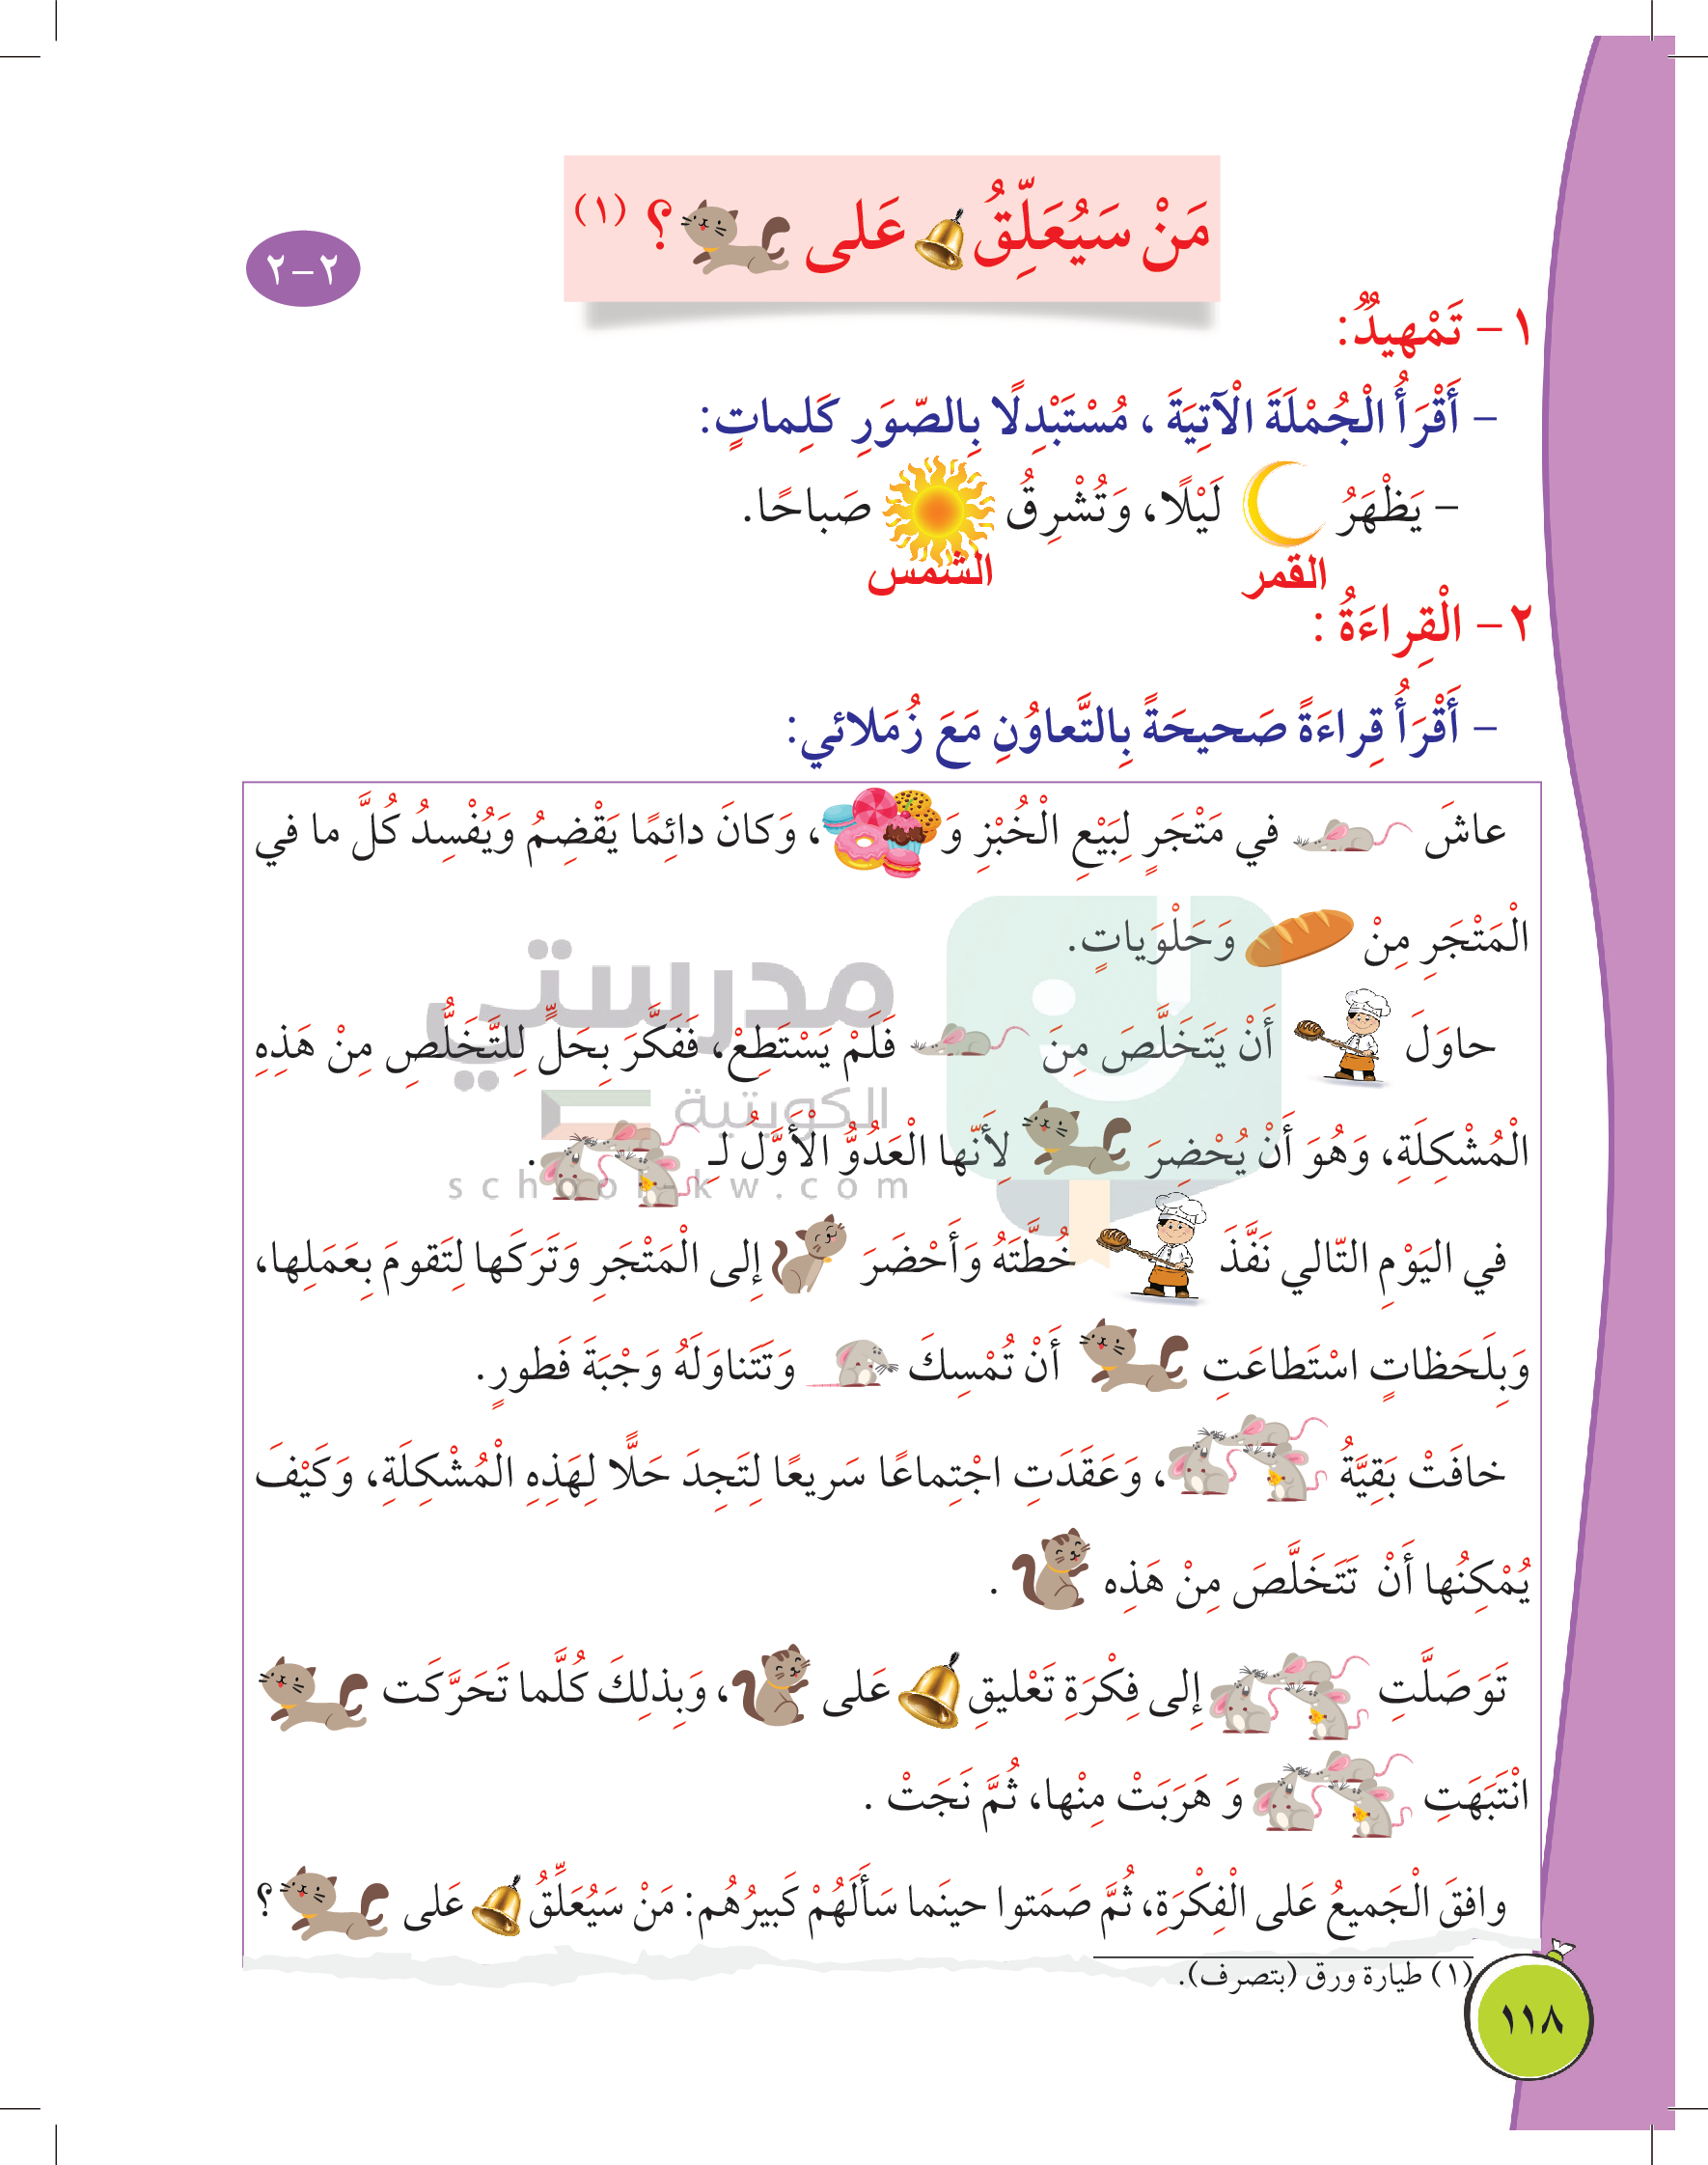 مَنْ سَيُعَلِّقُ عَلى ؟ (١)
٢-٢
١- تَمْهيدٌ:
- أَقْرَأُ الْجُمْلَةَ الْآتِيَةَ ، مُسْتَبْدِلًا بِالصّوَرِ كَلِماتٍ:
- يَظْهَرُ لَيْلًا، وَتُشْرِقُ صَباحًا.
القمر الشمس
٢- الْقِراءَةُ :
- أَقْرَأُ قِراءَةً صَحيحَةً بِالتَّعاوُنِ مَعَ زُمَلائي:
عاشَ في مَتْجَرٍ لِبَيْعِ الْخُبْزِ وَ ، وَكانَ دائِمًا يَقْضِمُ وَيُفْسِدُ كُلَّ ما في
الْمَتْجَرِ مِنْ وَحَلْوَياتٍ.
حاوَلَ أَنْ يَتَخَلَّصَ مِنَ فَلَمْ يَسْتَطِعْ، فَفَكَّرَ بِحَلٍّ لِلتَّخَلُّصِ مِنْ هَذِهِ
الْمُشْكِلَةِ، وَهُوَ أَنْ يُحْضِرَ لِأَنّها الْعَدُوُّ الْأَوَّلُ لـِ .
في اليَوْمِ التّالي نَفَّذَ خُطَّتَهُ وَأَحْضَرَ إِلى الْمَتْجَرِ وَتَرَكَها لِتَقومَ بِعَمَلِها،
وَبِلَحَظاتٍ اسْتَطاعَتِ أَنْ تُمْسِكَ وَتَتَناوَلَهُ وَجْبَةَ فَطورٍ.
خافَتْ بَقِيَّةُ ، وَعَقَدَتِ اجْتِماعًا سَريعًا لِتَجِدَ حَلًّا لِهَذِهِ الْمُشْكِلَةِ، وَكَيْفَ
يُمْكِنُها أَنْ تَتَخَلَّصَ مِنْ هَذِه .
تَوَصَلَّتِ إِلى فِكْرَةِ تَعْليقِ عَلى ، وَبِذلِكَ كُلَّما تَحَرَّكَت
انْتَبَهَتِ وَ هَرَبَتْ مِنْها، ثُمَّ نَجَتْ .
وافقَ الْجَميعُ عَلى الْفِكْرَةِ، ثُمَّ صَمَتوا حينَما سَأَلَهُمْ كَبيرُهُم: مَنْ سَيُعَلِّقُ عَلى ؟
(١) طيارة ورق (بتصرف).
١١٨
مدرستي
الكويتية
school-kw.com